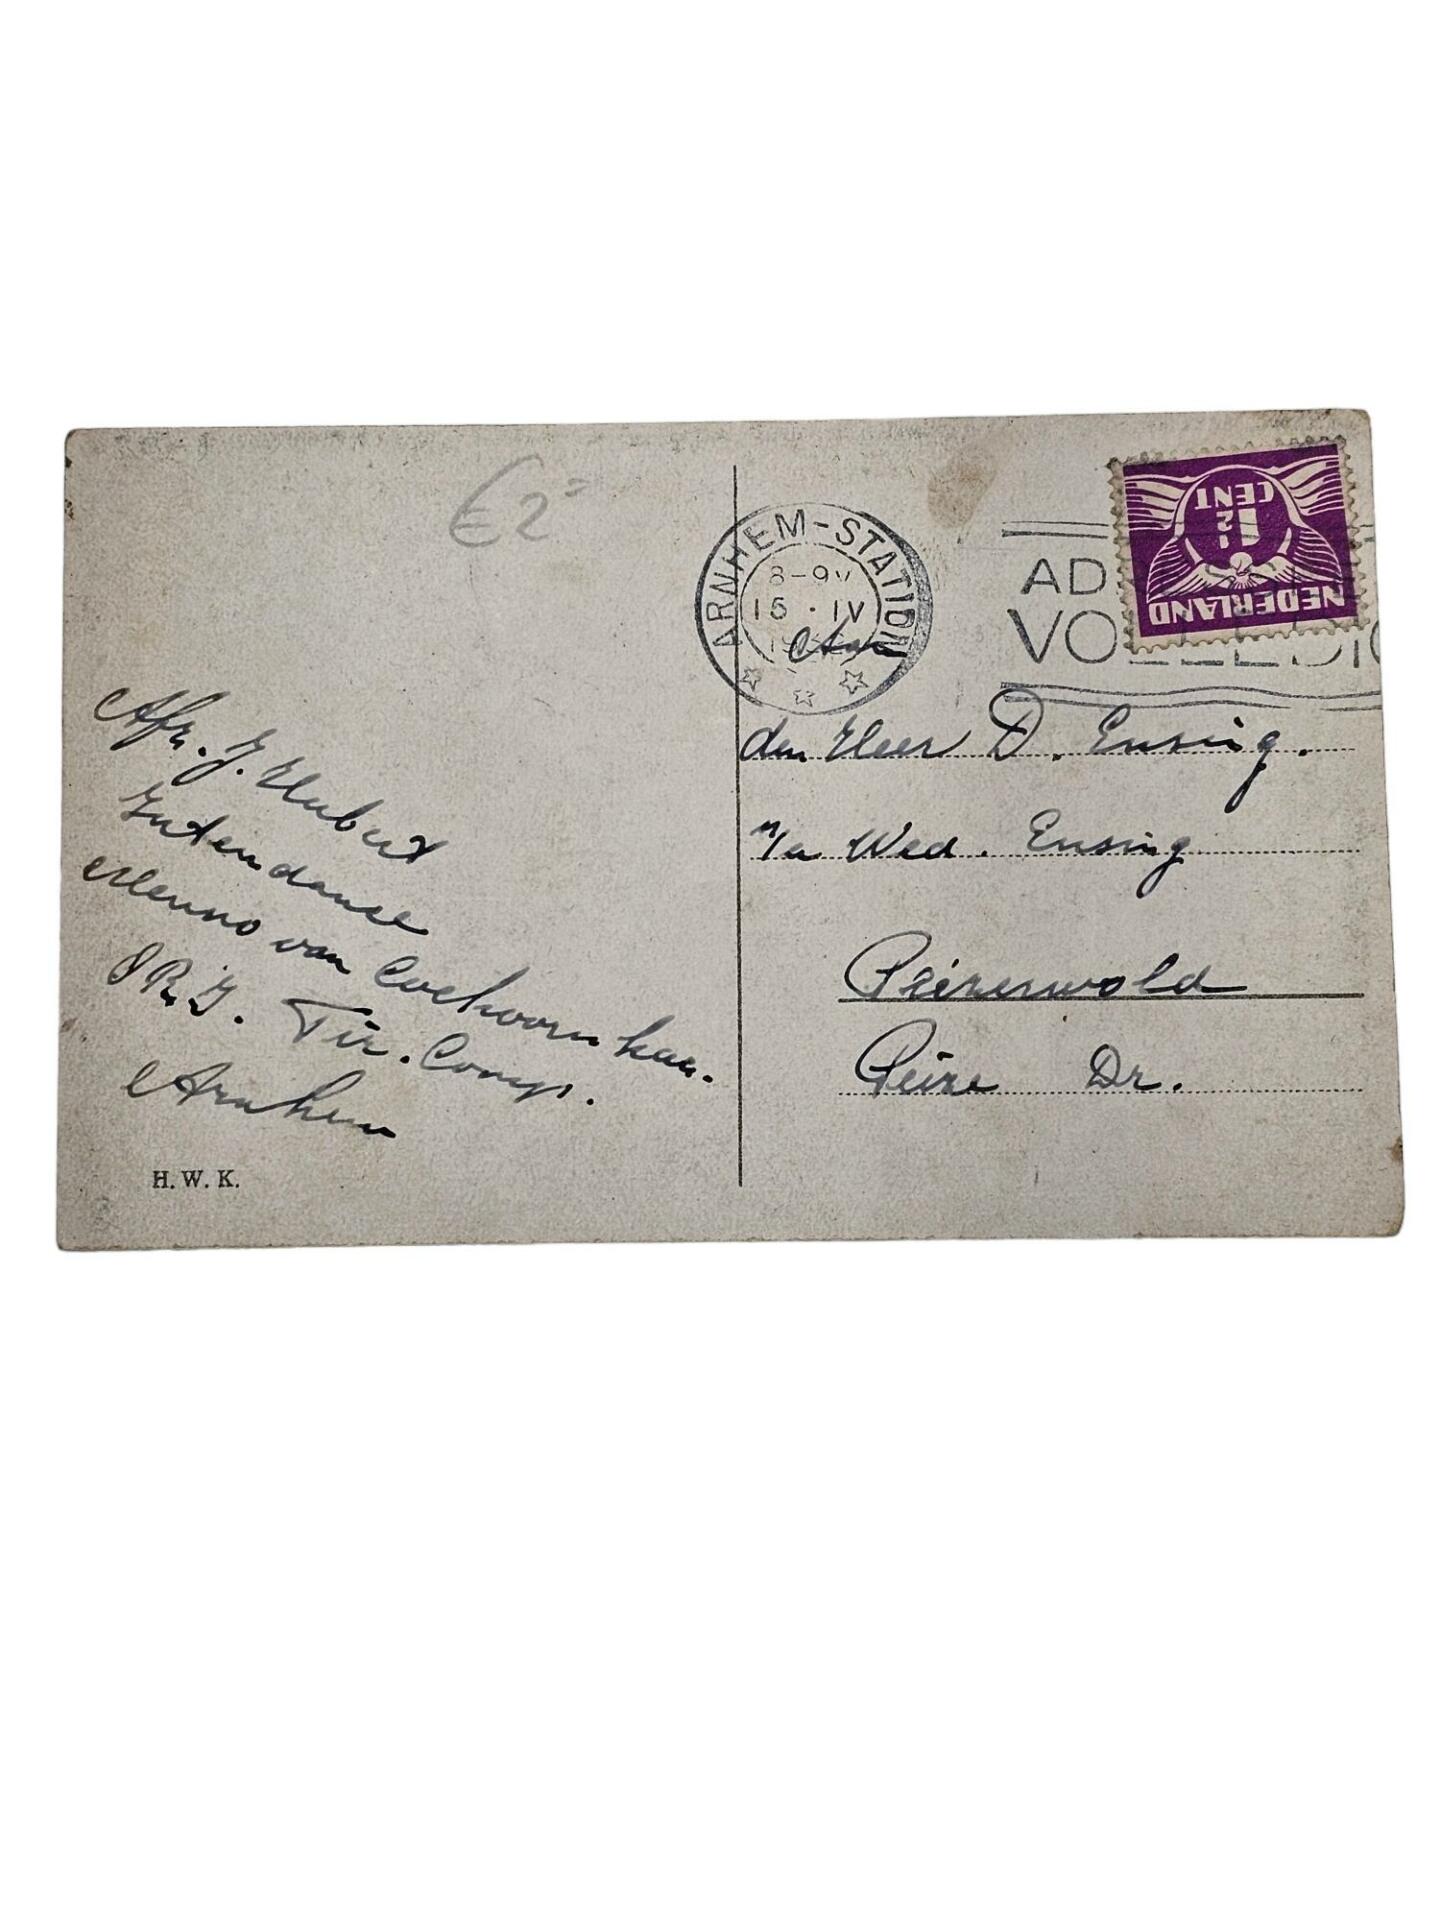 €2=
ARNHEM-STATION
8-9V
15 · IV
ADRES
VOLLEDIG
NEDERLAND
1½
CENT
Aan
den Heer D. Ensing.
p/a Wed. Ensing
Peizerwold
Peize Dr.
Afz. J. Hubert
Intendance
Menno van Coehoorn kaz.
Tir. Comp.
Arnhem
H. W. K.